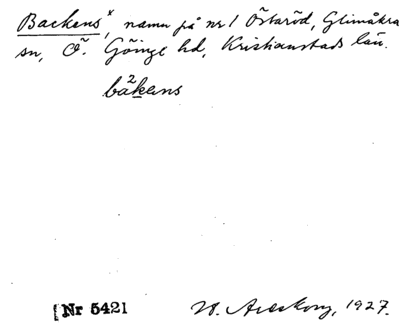 Backens*, namn på nr 1 Östaröd, Glimåkra
sn, Ö. Göinge hd, Kristianstads län.
bá²kens
[Nr 5421
W. Areskog, 1927.